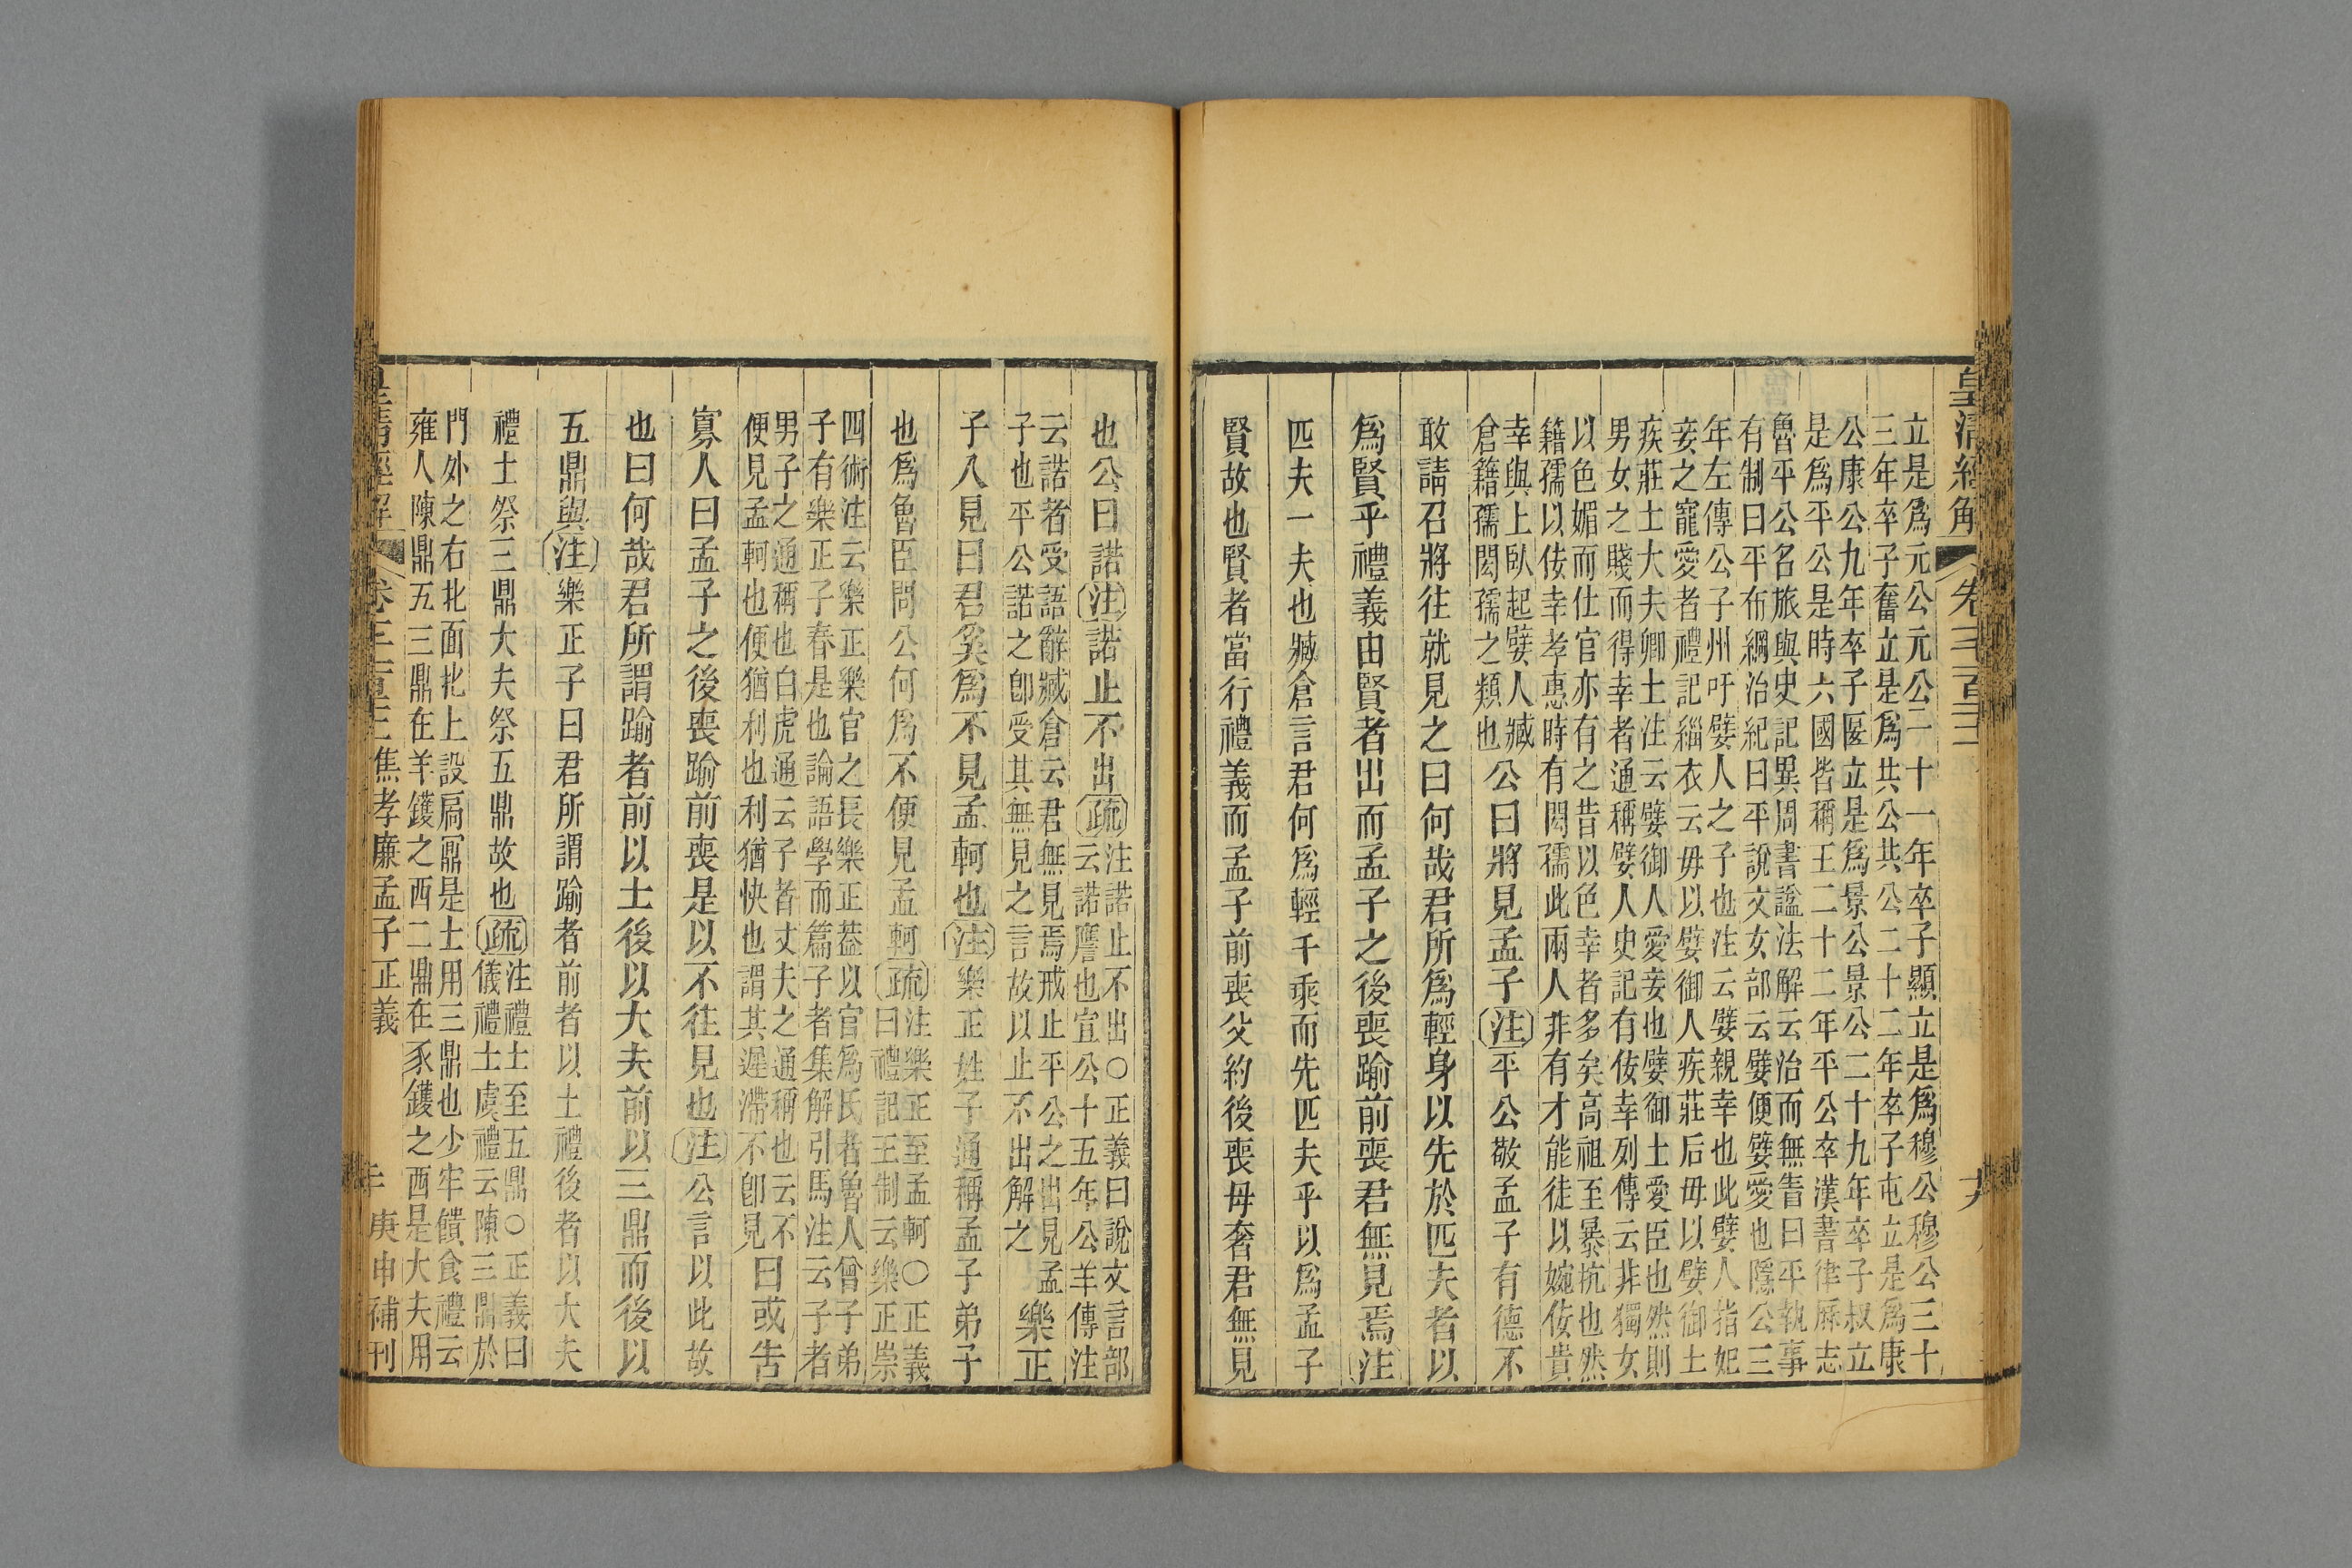 皇清經解
立是爲元公元公二十一年卒子顯立是爲穆公穆公三十
三年卒子奮立是爲共公共公二十二年卒子屯立是爲康
公康公九年卒子匽立是爲景公景公二十九年卒子叔立
是爲平公是時六國皆稱王二十二年平公卒漢書律厤志
魯平公名旅與史記異周書謚法解云治而無眚曰平執事
有制曰平布綱治紀曰平說文女部云嬖便嬖愛也隱公三
年左傳公子州吁嬖人之子也注云嬖親幸也此嬖人指妃
妾之寵愛者禮記緇衣云毋以嬖御人疾莊后毋以嬖御士
疾莊士大夫卿士注云嬖御人愛妾也嬖御士愛臣也然則
男女之賤而得幸者通稱嬖人史記有佞幸列傳云非獨女
以色媚而仕官亦有之昔以色幸者多矣高祖至暴抗也然
籍孺以佞幸孝惠時有閎孺此兩人非有才能徒以婉佞貴
幸與上臥起嬖人臧
倉籍孺閎孺之類也
公曰將見孟子注平公敬孟子有德不
敢請召將往就見之曰何哉君所爲輕身以先於匹夫者以
爲賢乎禮義由賢者出而孟子之後喪踰前喪君無見焉注
匹夫一夫也臧倉言君何爲輕千乘而先匹夫乎以爲孟子
賢故也賢者當行禮義而孟子前喪父約後喪母奢君無見
也公曰諾注諾止不出疏
注諾止不出○正義曰說文言部
云諾譍也宣公十五年公羊傳注
云諾者受語辭臧倉云君無見焉戒止平公之出見孟
子也平公諾之卽受其無見之言故以止不出解之
樂正
子入見曰君奚爲不見孟軻也注樂正姓子通稱孟子弟子
也爲魯臣問公何爲不便見孟軻疏
注樂正至孟軻○正義
曰禮記王制云樂正崇
四術注云樂正樂官之長樂正葢以官爲氏者魯人曾子弟
子有樂正子春是也論語學而篇子者集解引馬注云子者
男子之通稱也白虎通云子者丈夫之通稱也云不
便見孟軻也便猶利也利猶快也謂其遲滯不卽見
曰或告
寡人曰孟子之後喪踰前喪是以不往見也注公言以此故
也曰何哉君所謂踰者前以士後以大夫前以三鼎而後以
五鼎與注樂正子曰君所謂踰者前者以士禮後者以大夫
禮士祭三鼎大夫祭五鼎故也疏
注禮士至五鼎○正義曰
儀禮士虞禮云陳三鼎於
門外之右北面北上設扃鼏是士用三鼎也少牢饋食禮云
雍人陳鼎五三鼎在羊鑊之西二鼎在豕鑊之西是大夫用
皇清經解
焦孝廉孟子正義
庚申補刊